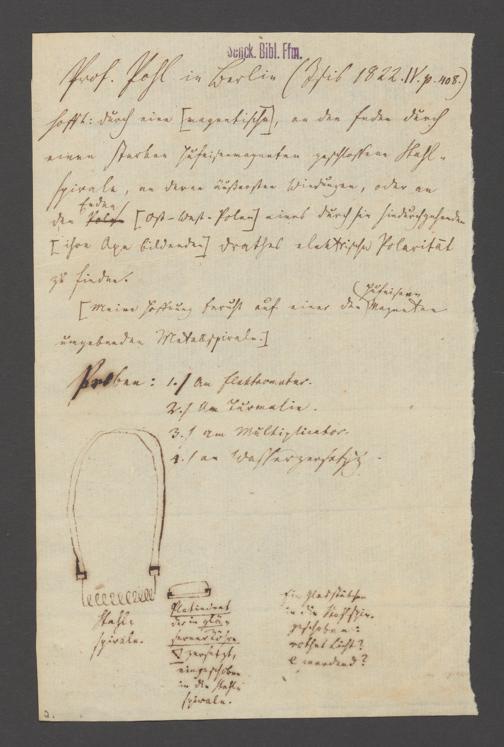 Senck. Bibl. Ffm.
Prof. Pohl in Berlin (Isis 1822. IV. p. 408.)
hofft: durch eine [magnetische], an den Enden durch
einen starken Hufeisenmagneten geschlossene Stahl-
spirale, an deren äußersten Windungen, oder an
Enden
den Polen [Ost-West-Polen] eines durch sie hindurchgehenden
[ihre Axe bildenden] Drathes elektrische Polarität
zu finden.
Hufeisen
[Meine Hoffnung beruht auf einer den Magneten
umgebenden Metallspirale.]
Proben: 1./ am Elektrometer.
2./ Am Turmalin.
3./ am Multiplicator.
4./ an Wasserzersetzg.
Stahl-
spirale.
Platindrat
der in glä-
serner Röhre
zersetzt,
eingeschoben
in die Stahl-
spirale.
Ein
in die Stahlspir.
geschoben:
rothes Licht?
werdend?
2.